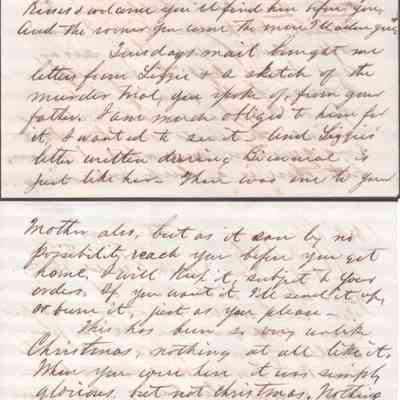 Rivers & welcome you'll find him before you,
And the sooner you come the more I'll
Tuesdays mail brought me
letters from Lizzie & a sketch of the
murder trial, you spoke of, from your
father. I am much obliged to him for
it, I wanted to see it – and Lizzies
letter written during Bicurial is
just like her. There was one to your
Mother also, but as it can by no
possibility reach you before you get
home, I will keep it, subject to your
orders. If you want it, I'll send it up,
or burn it, just as you please –
This has been so very unlike
Christmas, nothing at all like it.
When you were here it was simply
glorious, but not christmas. Nothing